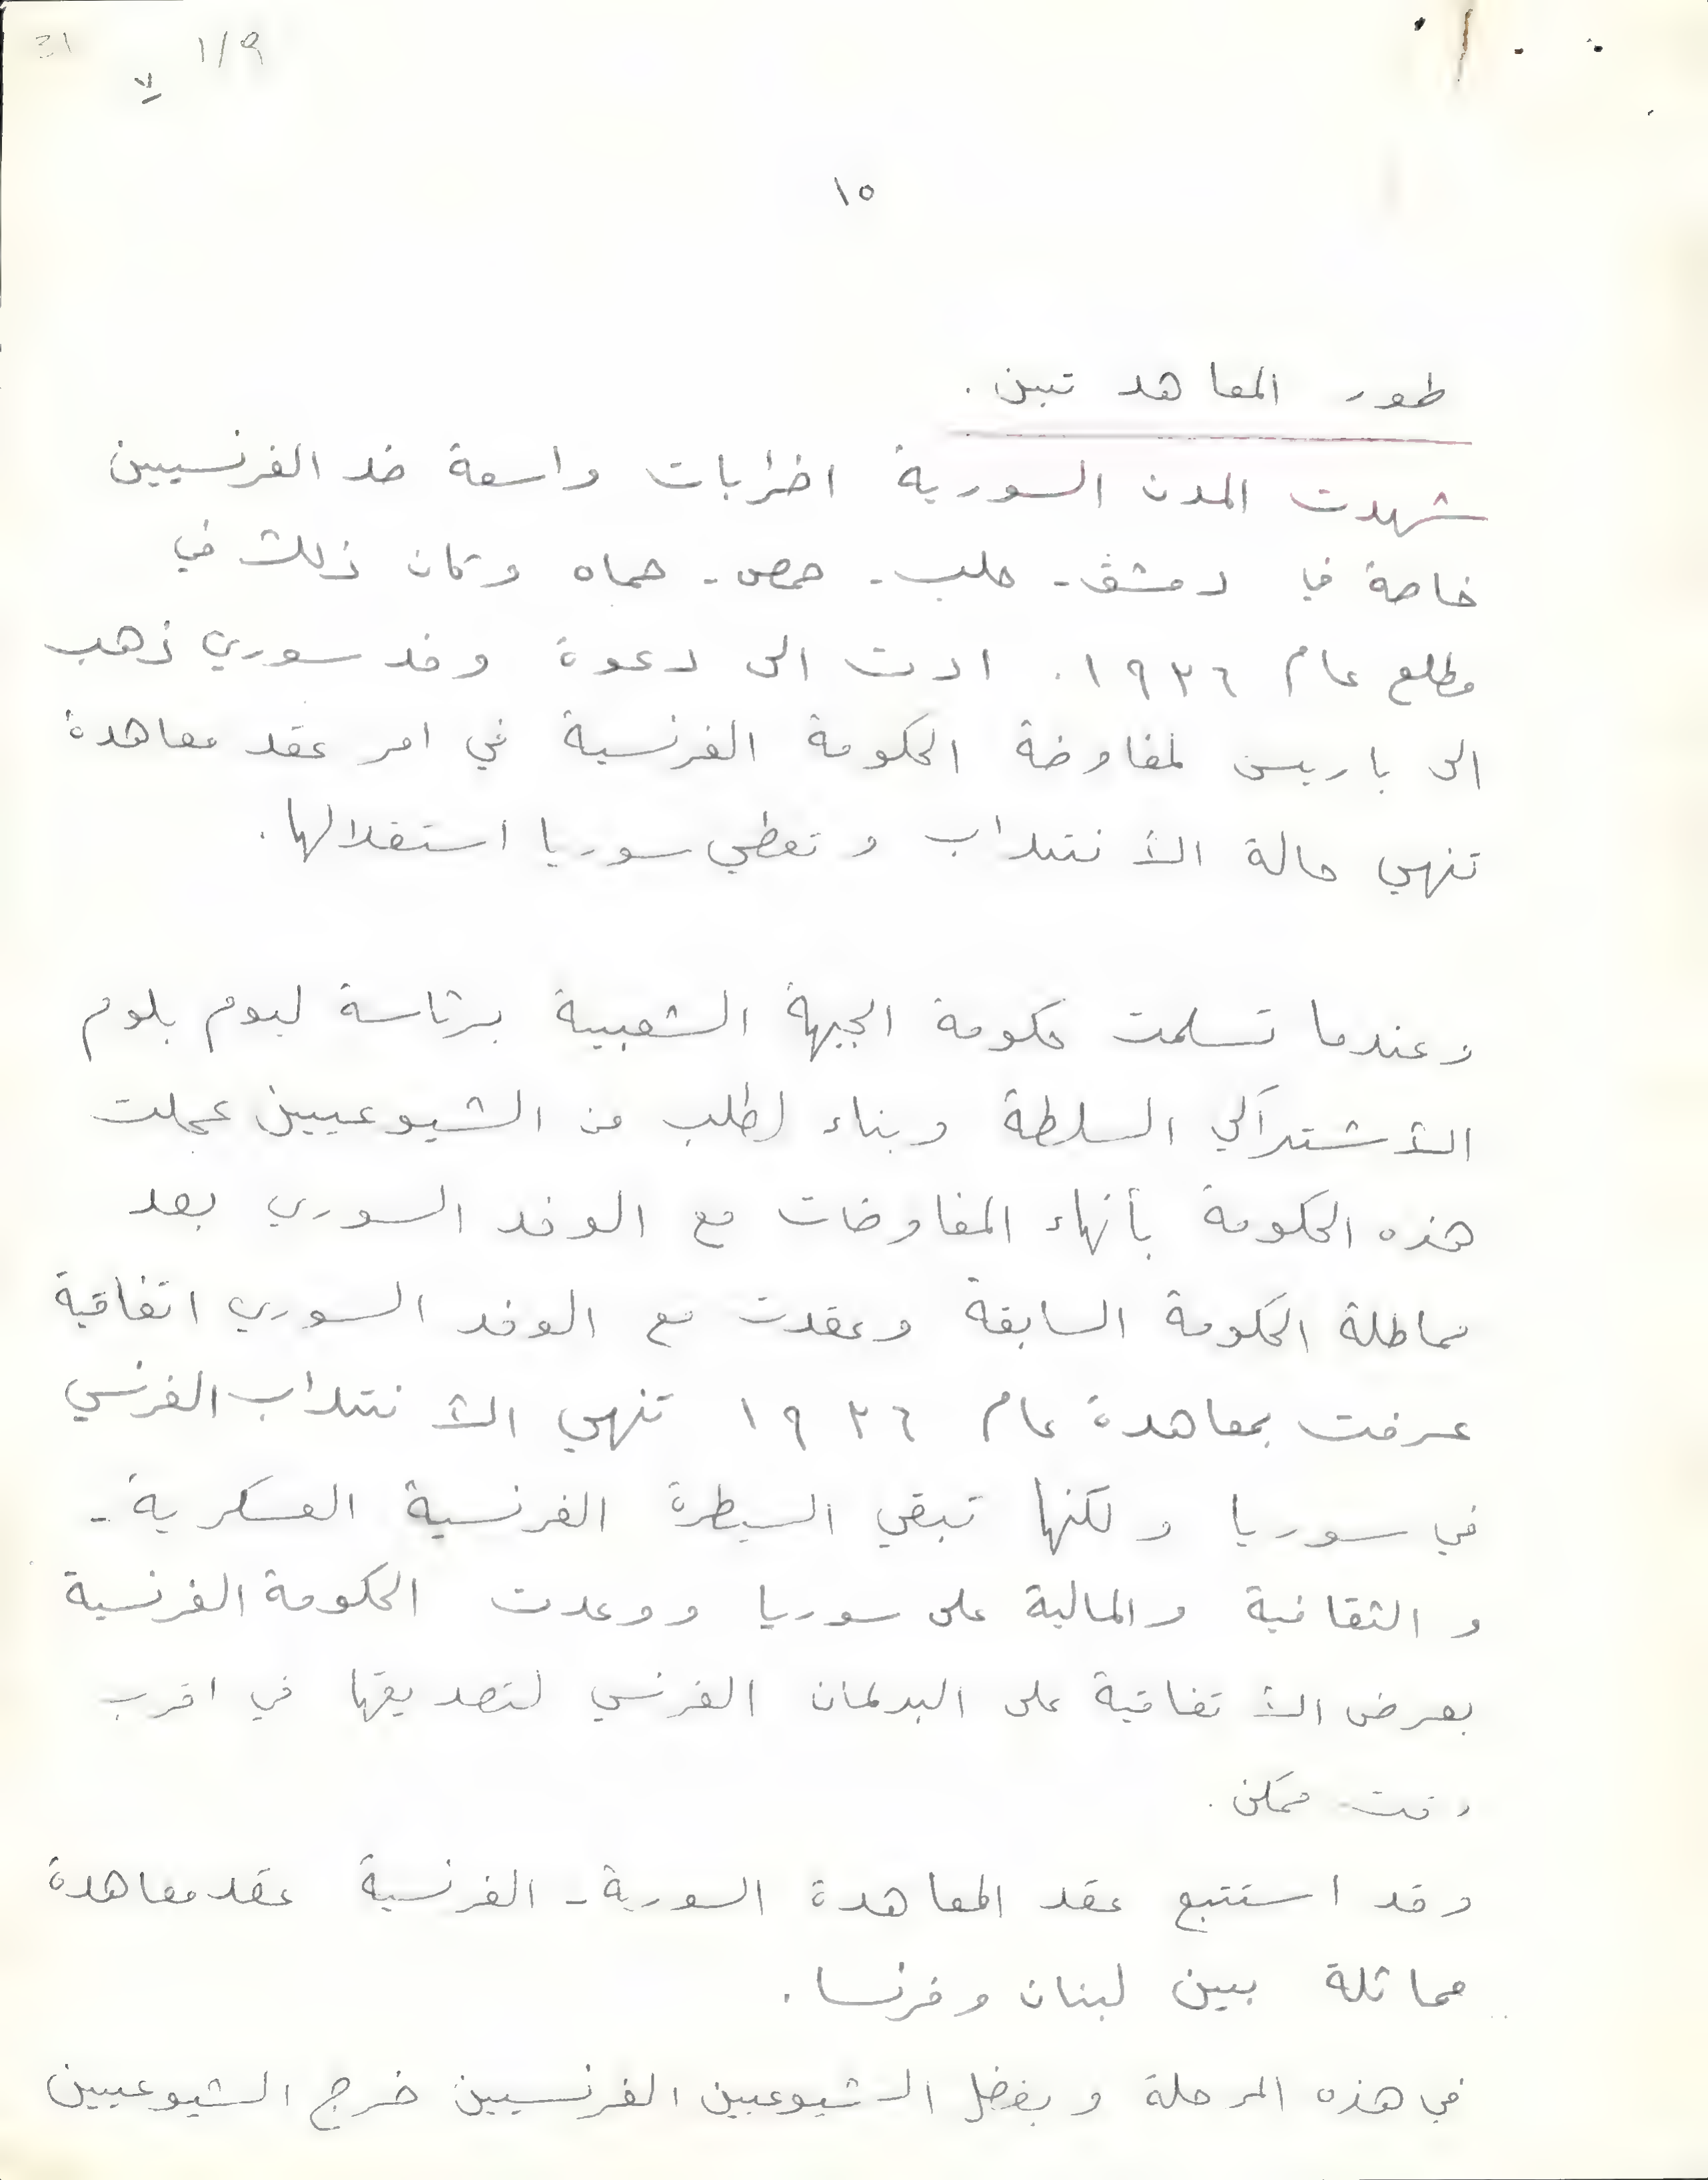 ١/٩
١٥
طور المعاهدتين.
شهدت المدن السورية اضرابات واسعة ضد الفرنسيين
خاصة في دمشق - حلب - حمص - حماه وكان ذلك في
مطلع عام ١٩٣٦. ادت الى دعوة وفد سوري ذهب
الى باريس لمفاوضة الحكومة الفرنسية في امر عقد معاهدة
تنهي حالة الأنتداب وتعطي سوريا استقلالها.
وعندما تسلمت حكومة الجبهة الشعبية برئاسة ليوم بلوم
الأشتراكي السلطة وبناء لطلب من الشيوعيين عجلت
هذه الحكومة بأنهاء المفاوضات مع الوفد السوري بعد
مماطلة الحكومة السابقة وعقدت مع الوفد السوري اتفاقية
عرفت بمعاهدة عام ١٩٣٦ تنهي الأنتداب الفرنسي
في سوريا ولكنها تبقي السيطرة الفرنسية العسكرية -
والثقافية والمالية على سوريا ووعدت الحكومة الفرنسية
بعرض الأتفاقية على البرلمان الفرنسي لتصديقها في اقرب
وقت ممكن.
وقد استتبع عقد المعاهدة السورية - الفرنسية عقد معاهدة
مماثلة بين لبنان وفرنسا.
في هذه المرحلة وبفضل الشيوعيين الفرنسيين خرج الشيوعيين